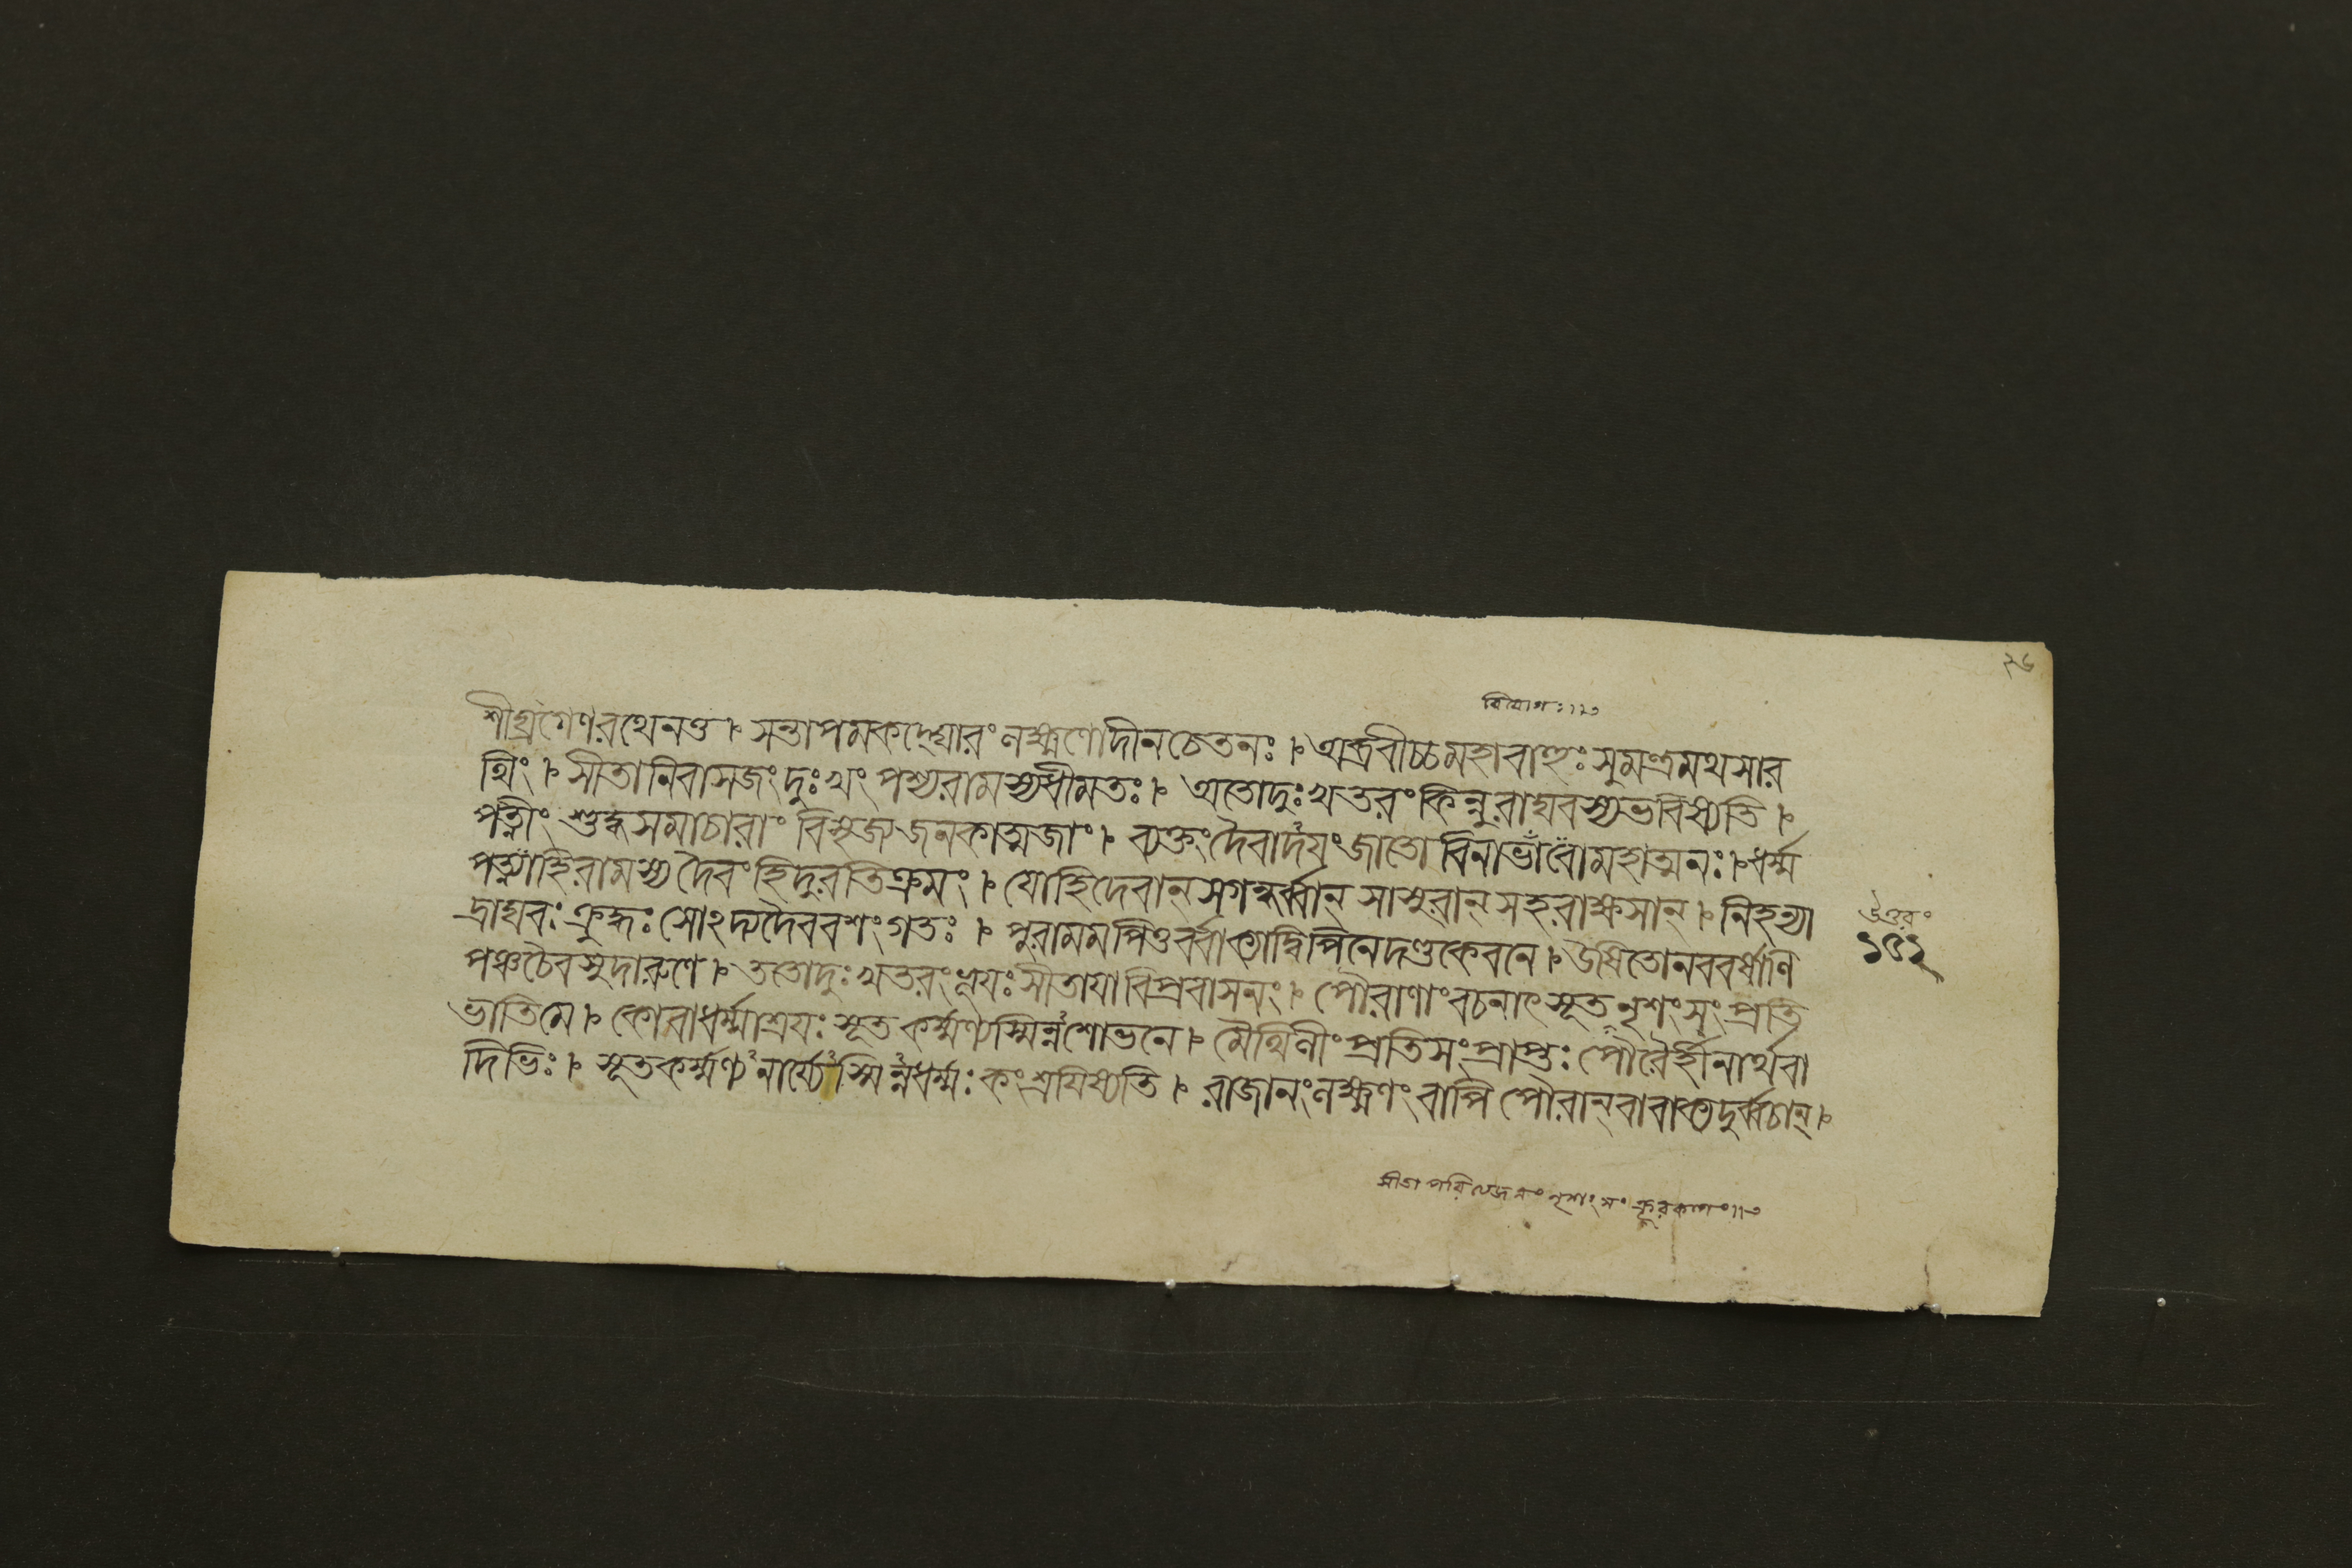 ২৬
বিয়োগঃ॥৩
শীঘ্রগেণরথেনতু । সন্তাপমকদ্ঘোরংলক্ষ্মণোদীনচেতনঃ । অব্রবীচ্চমহাবাহুঃসুমন্ত্রমথসার
থিং । সীতানিবাসজংদুঃখংপশ্যরামস্যধীমতঃ । অতোদুঃখতরংকিন্নুরাঘবস্যভবিষ্যতি ।
পত্নীংশুদ্ধসমাচারাংবিসৃজ্যজনকাত্মজাং । ব্যক্তংদৈবাদযংজাতোবিনাভাবোমহাত্মনঃ । ধর্ম্ম
পত্ন্যাহিরামস্যদৈবংহিদুরতিক্রমং । যোহিদেবান্সগন্ধর্ব্বান্ সাসুরান্সহরাক্ষসান্ । নিহন্যা
দ্রাঘবঃক্রুদ্ধঃসোঽদ্যদৈববশংগতঃ । পুরামমপিতুর্ব্বাক্যাদ্বিপিনেদণ্ডকেবনে । উষিতোনববর্ষাণি
উত্তরং
১৫২
পঞ্চচৈবসুদারুণে । ততোদুঃখতরংভূযঃসীতাযাবিপ্রবাসনং । পৌরাণাংবচনাৎসূতনৃশংসংপ্রতি
ভাতিমে । কোবাধর্ম্মাশ্রযঃসূতকর্ম্মণ্যস্মিন্নশোভনে । মৈথিলীংপ্রতিসংপ্রাপ্তঃপৌরৈর্হীনার্থবা
দিভিঃ । সূতকর্ম্মণ্যনার্য্যেস্মিন্নধর্ম্মঃকংশ্রযিষ্যতি । রাজানংলক্ষ্মণংবাপিপৌরান্বাবাক্যদুর্ব্বচান্ ।
সীতাপরিত্যেজনংনৃশংসংক্রূরকাণং॥৩